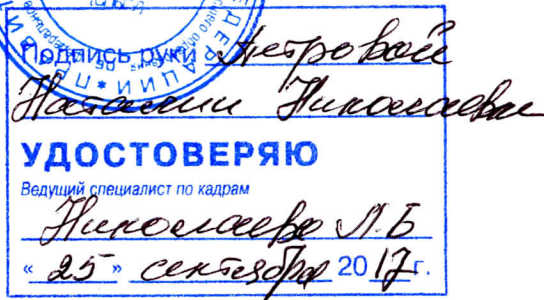 Подпись руки Петровой
Наталии Николаевны
УДОСТОВЕРЯЮ
Ведущий специалист по кадрам
Николаева Л.Б
« 25 » сентября 2017г.